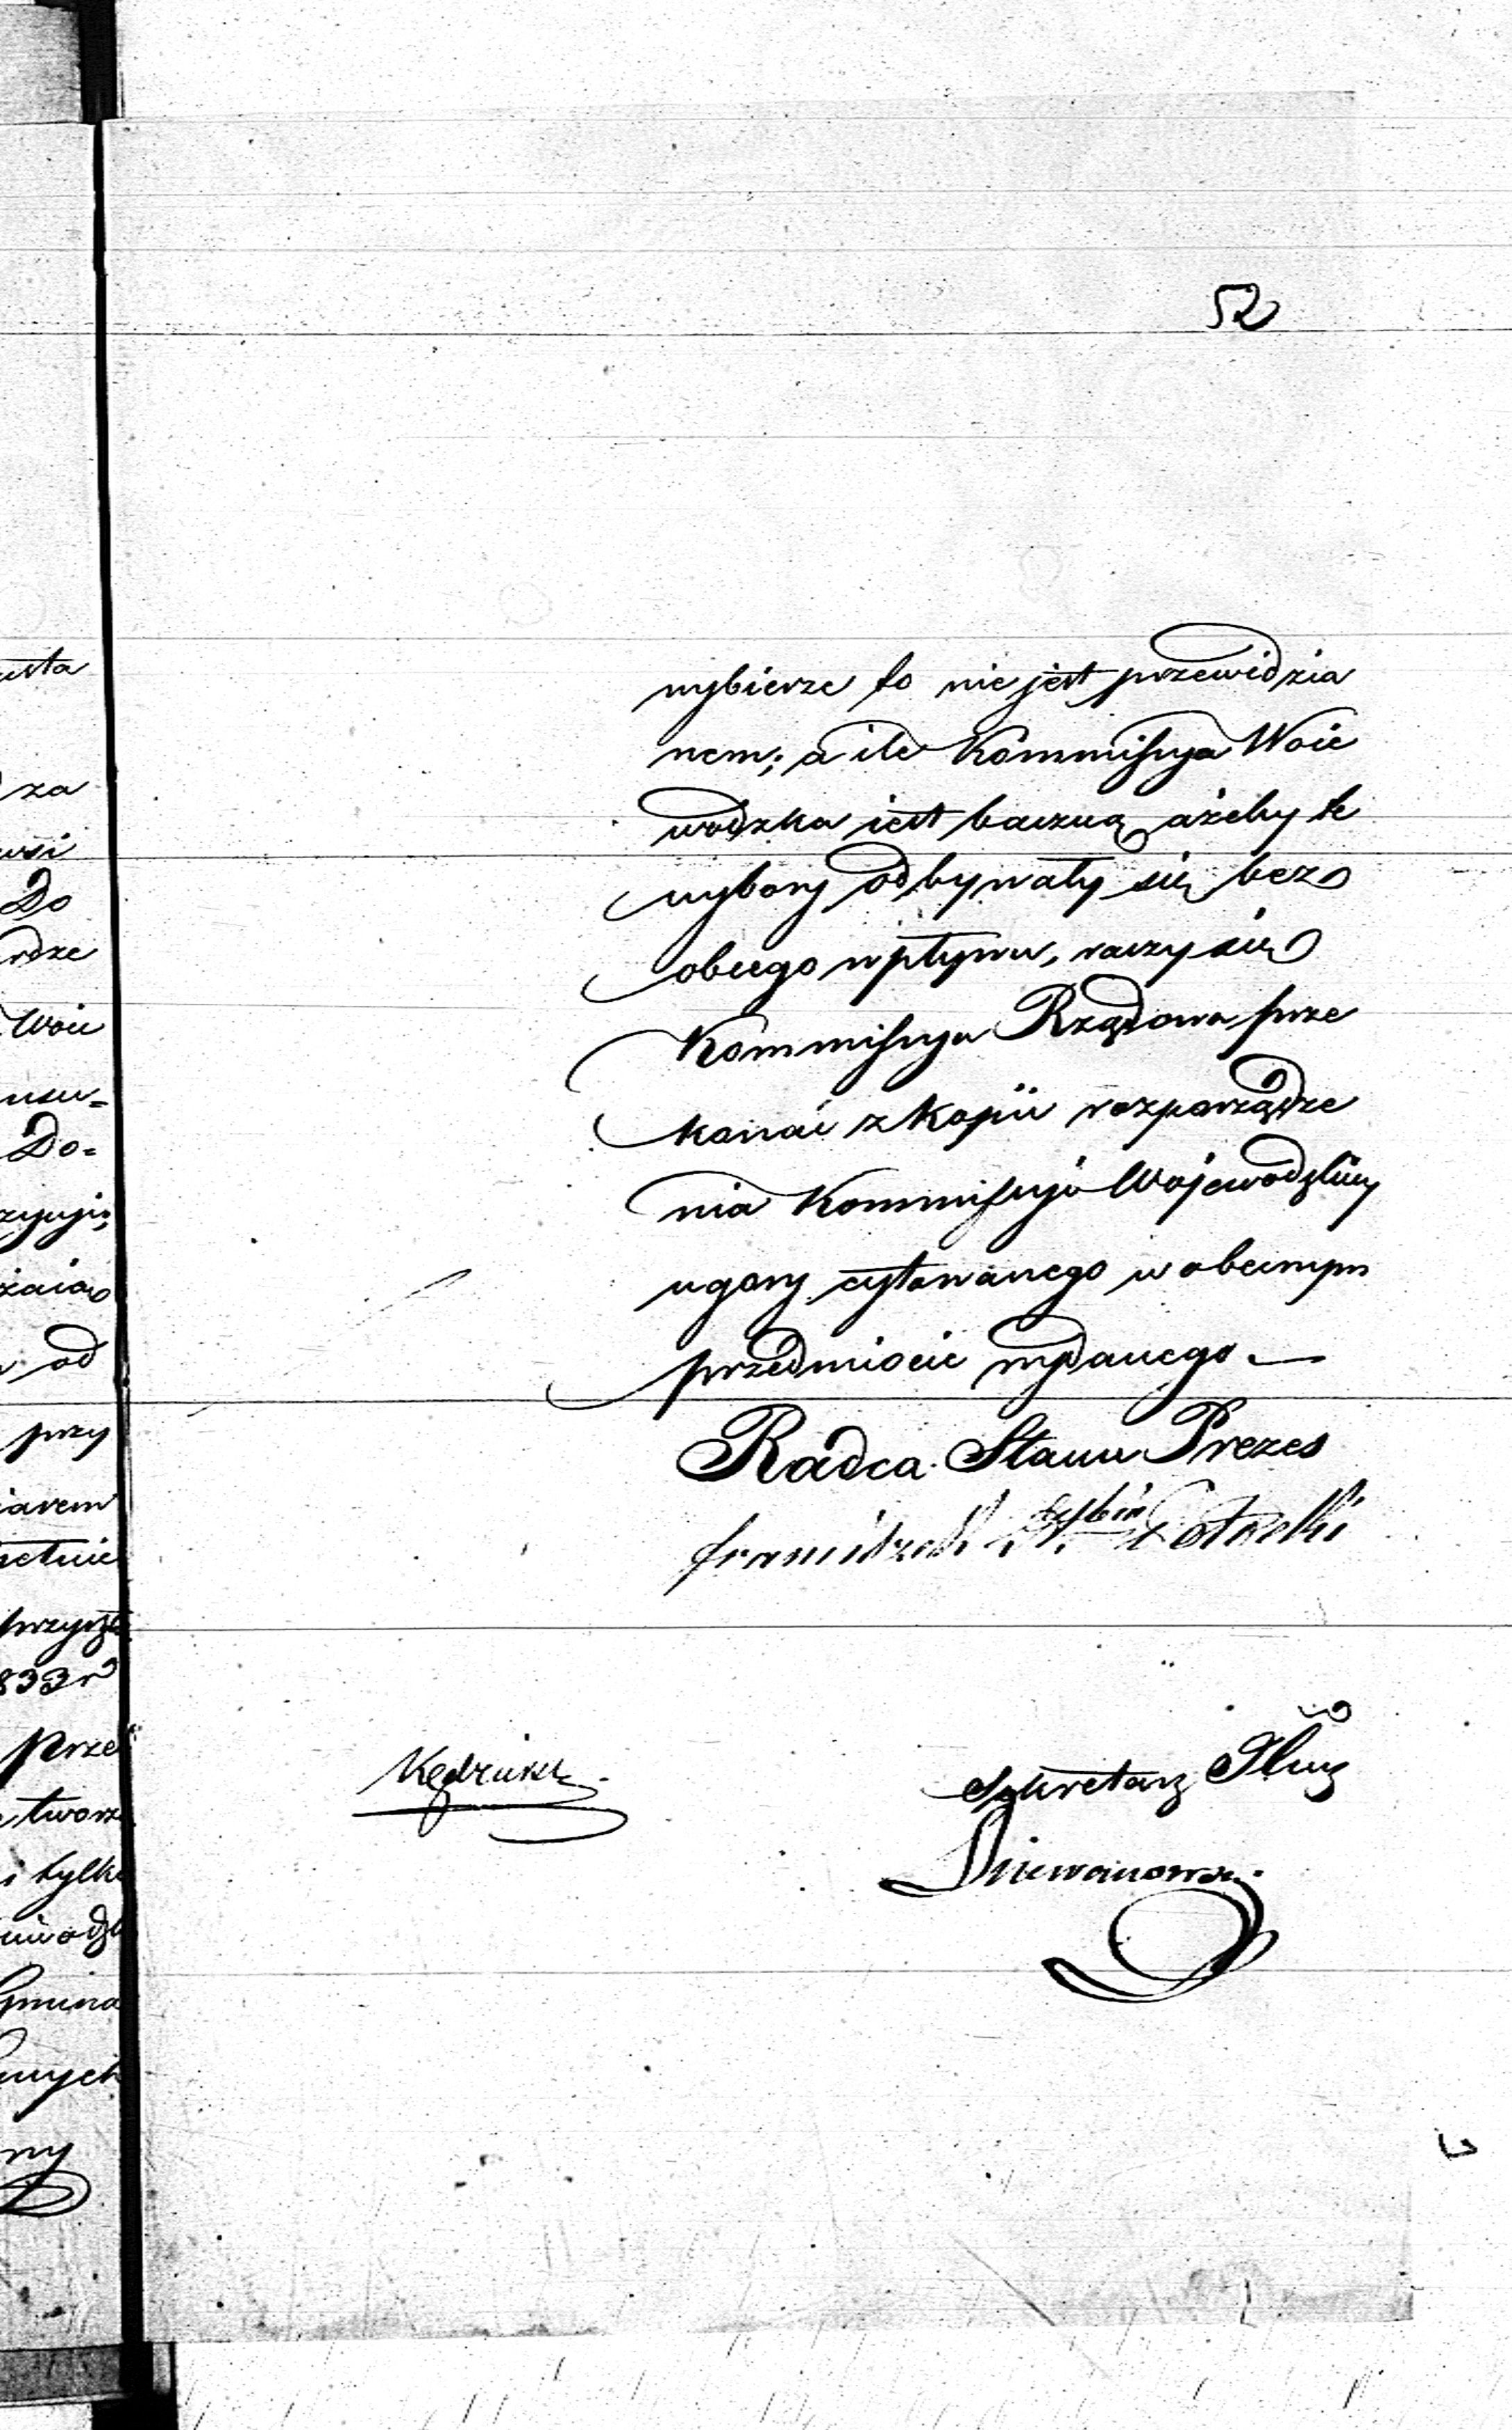 52
wybierze to nie jest przewidzia
nem; a ile Kommissya Woie
wodzka iest baczną ażeby te
wybory odbywały się bez
obcego wpływu, raczy się
Kommissya Rządowa prze
konać z kopii rozporządze
nia Kommissyi Wojewodzkiey
ugory cytowanego w obecnym
przedmiocie wydanego.—
Radca Stanu Prezes
Potocki
Sekretarz
usta
za
Do
Woie
Do=
od
przy
833 r
prze
tworz
i tylko
Gmina